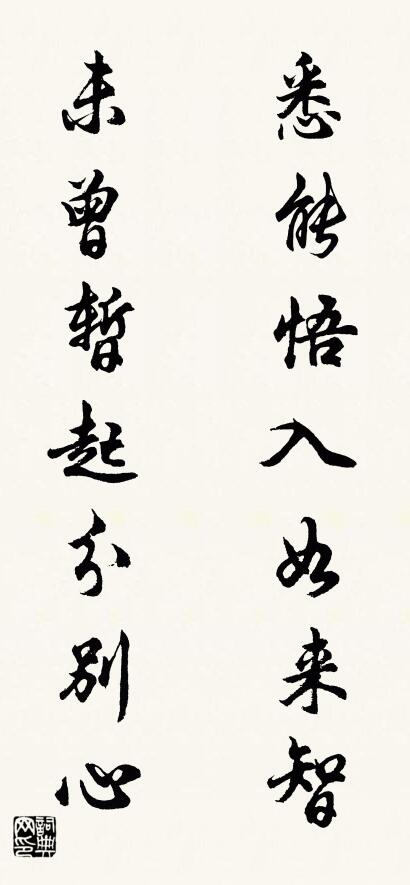 悉能悟入如来智
未曾暫起分别心
詞典网印